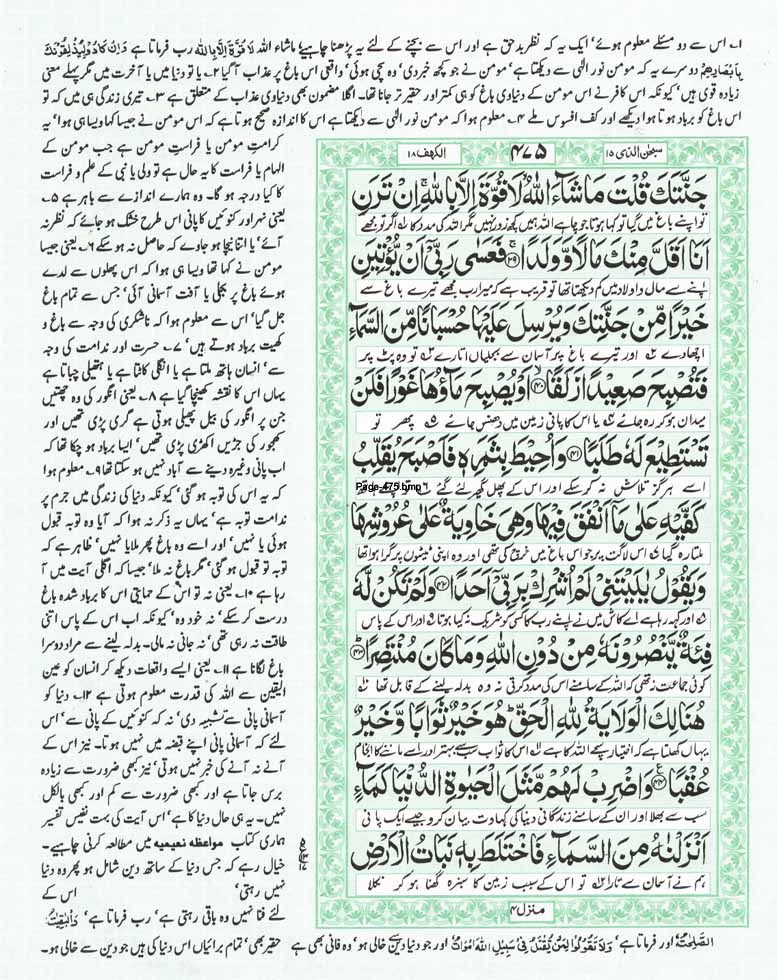 ۱۔ اس سے دو مسئلے معلوم ہوئے' ایک یہ کہ نظر بد حق ہے اور اس سے بچنے کے لئے یہ پڑھنا چاہیے ماشاء اللہ لَا قُوَّةَ اِلَّا بِاللهِ رب فرماتا ہے وَاِنْ كَادُ وَلِيُذْلِقُوْنَكَ
بِاَبْصَارِهِمْ دوسرے یہ کہ مومن نور الٰہی سے دیکھتا ہے' مومن نے جو کچھ خبر دی' وہ سچی ہوئی' واقعی اس باغ پر عذاب آ گیا ۲۔ یا تو دنیا میں یا آخرت میں مگر پہلے معنی
زیادہ قوی ہیں' کیونکہ اس کافر نے اس مومن کے دنیاوی باغ کو ہی کمتر اور حقیر تر جانا تھا۔ اگلا مضمون بھی دنیاوی عذاب کے متعلق ہے ۳۔ تیری زندگی ہی میں کہ تو
اس باغ کو برباد ہوتا ہوا دیکھے اور کف افسوس ملے ۴۔ معلوم ہوا کہ مومن نور الٰہی سے دیکھتا ہے اس کا اندازہ صحیح ہوتا ہے کہ اس مومن نے جیسا کہا ویسا ہی ہوا' یہ
سبحٰن الذی ۱۵
۴۷۵
الکھف ۱۸
جَنَّتَكَ قُلْتَ مَا شَآءَ اللّٰهُ لَا قُوَّةَ اِلَّا بِاللّٰهِ ۚ اِنْ تَرَنِ
تو اپنے باغ میں گیا تو کہا ہوتا جو چاہے اللہ ہمیں کچھ زور نہیں مگر اللہ کی مدد کا اگر تو مجھے
اَنَا اَقَلَّ مِنْكَ مَالًا وَّوَلَدًا ۚ۳۹ فَعَسٰى رَبِّيْۤ اَنْ يُّؤْتِيَنِ
اپنے سے مال و اولاد میں کم دیکھتا تھا تو قریب ہے کہ میرا رب مجھے تیرے باغ سے
خَيْرًا مِّنْ جَنَّتِكَ وَيُرْسِلَ عَلَيْهَا حُسْبَانًا مِّنَ السَّمَآءِ
اچھا دے اور تیرے باغ پر آسمان سے بجلیاں اتارے تو وہ پٹ پر
فَتُصْبِحَ صَعِيْدًا زَلَقًا ۙ۴۰ اَوْ يُصْبِحَ مَآؤُهَا غَوْرًا فَلَنْ
میدان ہو کر رہ جائے یا اس کا پانی زمین میں دھنس جائے پھر تو
تَسْتَطِيْعَ لَهٗ طَلَبًا ۴۱ وَاُحِيْطَ بِثَمَرِهٖ فَاَصْبَحَ يُقَلِّبُ
اسے ہرگز تلاش نہ کر سکے اور اس کے پھل گھیر لئے گئے
Page-475.bmp
كَفَّيْهِ عَلٰى مَاۤ اَنْفَقَ فِيْهَا وَهِيَ خَاوِيَةٌ عَلٰى عُرُوْشِهَا
ملتا رہ گیا اس لاگت پر جو اس باغ میں خرچ کی تھی اور وہ اپنی ٹیٹوں پر گرا ہوا تھا
وَيَقُوْلُ يٰلَيْتَنِيْ لَمْ اُشْرِكْ بِرَبِّيْۤ اَحَدًا ۴۲ وَلَمْ تَكُنْ لَّهٗ
اور کہہ رہا ہے اے کاش میں نے اپنے رب کا کسی کو شریک نہ کیا ہوتا اور اس کے پاس
فِئَةٌ يَّنْصُرُوْنَهٗ مِنْ دُوْنِ اللّٰهِ وَمَا كَانَ مُنْتَصِرًا ۴۳
کوئی جماعت نہ تھی کہ اللہ کے سامنے اس کی مدد کرتی نہ وہ بدلہ لینے کے قابل تھا
هُنَالِكَ الْوَلَايَةُ لِلّٰهِ الْحَقِّ ؕ هُوَ خَيْرٌ ثَوَابًا وَّخَيْرٌ
یہاں کھلتا ہے کہ اختیار سچے اللہ کا ہے اس کا ثواب سب سے بہتر اور اسے ماننے کا انجام
عُقْبًا ۴۴ وَاضْرِبْ لَهُمْ مَّثَلَ الْحَيٰوةِ الدُّنْيَا كَمَآءٍ
سب سے بھلا اور ان کے سامنے زندگانی دنیا کی کہاوت بیان کرو جیسے ایک پانی
اَنْزَلْنٰهُ مِنَ السَّمَآءِ فَاخْتَلَطَ بِهٖ نَبَاتُ الْاَرْضِ
ہم نے آسمان سے اتارا تو اس کے سبب زمین کا سبزہ گھنا ہو کر نکلا
منزل ۴
کرامت مومن یا فراست مومن ہے جب مومن کے
الہام یا فراست کا یہ حال ہے تو ولی یا نبی کے علم و فراست
کا کیا درجہ ہو گا۔ وہ ہمارے اندازے سے باہر ہے ۵۔
یعنی نہر اور کنوئیں کا پانی اس طرح خشک ہو جائے کہ نظر نہ
آئے' یا اتنا نیچا ہو جاوے کہ حاصل نہ ہو سکے ۶۔ یعنی جیسا
مومن نے کہا تھا ویسا ہی ہوا کہ اس پھلوں سے لدے
ہوئے باغ پر بجلی یا آفت آسمانی آئی' جس سے تمام باغ
جل گیا' اس سے معلوم ہوا کہ ناشکری کی وجہ سے باغ و
کھیت برباد ہوتے ہیں' ۷۔ حسرت اور ندامت کی وجہ
سے' انسان ہاتھ ملتا ہے یا انگلی کاٹتا ہے یا ہتھیلی چباتا ہے
یہاں اس کا نقشہ کھینچا گیا ہے ۸۔ یعنی انگور کی وہ چھتیں
جن پر انگور کی بیل پھیلی ہوتی ہے گری پڑی تھیں اور
کھجور کی جڑیں اکھڑی پڑی تھیں' ایسا برباد ہو چکا تھا کہ
اب پانی وغیرہ دینے سے آباد نہیں ہو سکتا تھا ۹۔ معلوم ہوا
کہ یہ اس کی توبہ ہو گئی' کیونکہ دنیا کی زندگی میں جرم پر
ندامت توبہ ہے' یہاں یہ ذکر نہ ہوا کہ آیا وہ توبہ قبول
ہوئی یا نہیں' اور اسے وہ باغ پھر ملا یا نہیں' ظاہر ہے کہ
توبہ تو قبول ہو گئی' مگر باغ نہ ملا' جیسا کہ اگلی آیت میں آ
رہا ہے ۱۰۔ یعنی نہ تو اس کے حمایتی اس کا برباد شدہ باغ
درست کر سکے' نہ خود وہ' کیونکہ اب اس کے پاس اتنی
طاقت نہ رہی تھی' نہ جانی نہ مالی۔ بدلہ لینے سے مراد دوسرا
باغ لگانا ہے ۱۱۔ یعنی ایسے واقعات دیکھ کر انسان کو عین
الیقین سے اللہ کی قدرت معلوم ہوتی ہے ۱۲۔ دنیا کو
آسمانی پانی سے تشبیہ دی' نہ کہ کنوئیں کے پانی سے' اس
لئے کہ آسمانی پانی اپنے قبضہ میں نہیں ہوتا۔ نیز اس کے
آنے نہ آنے کی خبر نہیں ہوتی' نیز کبھی ضرورت سے زیادہ
برس جاتا ہے اور کبھی ضرورت سے کم اور کبھی بالکل
نہیں۔ یہ ہی حال دنیا کا ہے' اس آیت کی بہت نفیس تفسیر
ہماری کتاب مواعظہ نعیمیہ میں مطالعہ کرنی چاہیے۔
خیال رہے کہ جس دنیا کے ساتھ دین شامل ہو پھر وہ دنیا
نہیں رہتی' اس کے
لئے فنا نہیں وہ باقی رہتی ہے' رب فرماتا ہے' وَالْبٰقِيٰتُ
الصّٰلِحٰتُ اور فرماتا ہے' وَلَا تَقُوْلُوْا لِمَنْ يُّقْتَلُ فِيْ سَبِيْلِ اللهِ اَمْوَاتٌ اور جو دنیا دین سے خالی ہو' وہ فانی بھی ہے حقیر بھی' تمام برائیاں اس دنیا کی ہیں جو دین سے خالی ہو۔